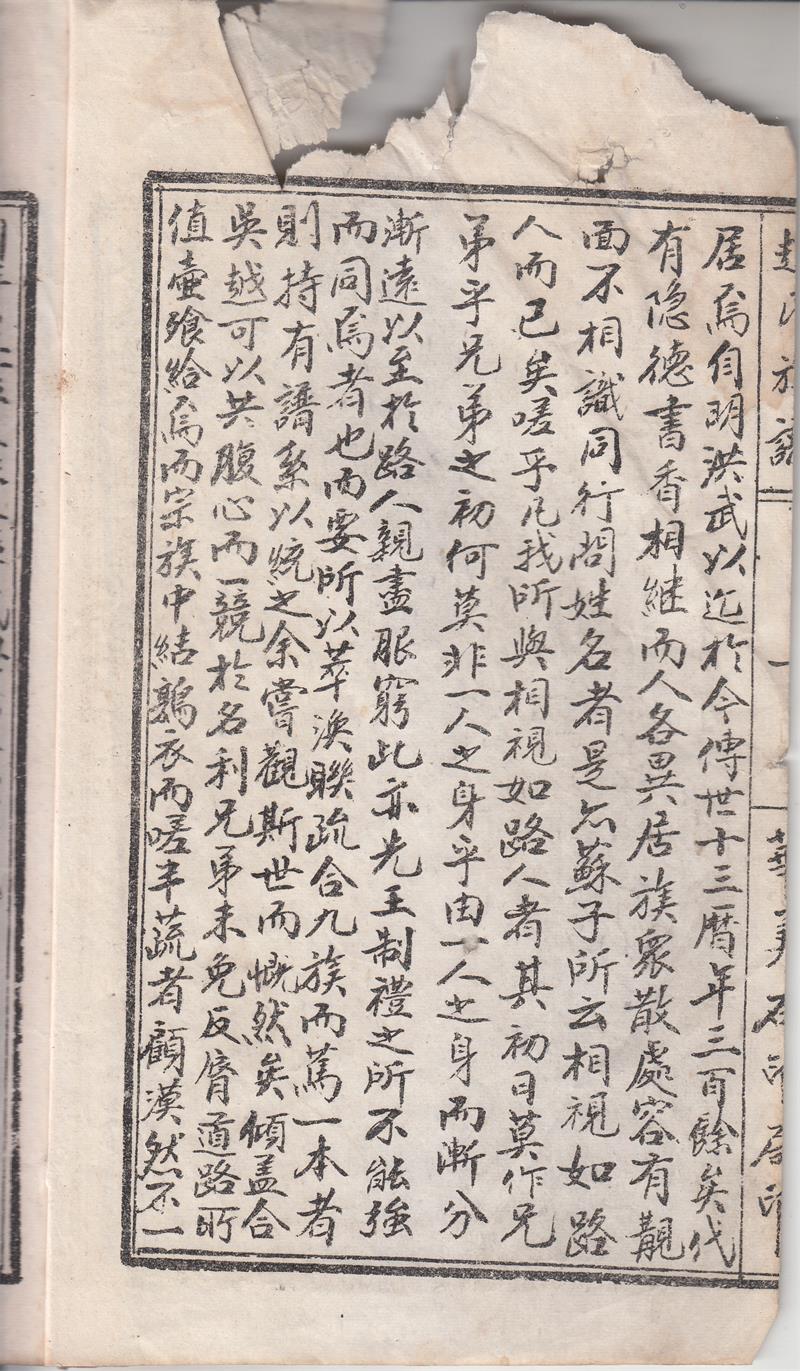 趙氏族譜
一
華美石印局印
居焉自明洪武以迄於今傳世十三曆年三百餘矣代
有隐德書香相継而人各異居族衆散處容有覿
面不相識同行問姓名者是亦蘇子所云相視如路
人而已矣嗟乎凡我所與相視如路人者其初曷莫作兄
弟乎兄弟之初何莫非一人之身乎由一人之身而漸分
漸遠以至於路人親盡服窮此亦先王制禮之所不能強
而同焉者也而要所以萃渙聯疏合九族而篤一本者
則持有譜系以統之余嘗觀斯世而慨然矣傾盖合
吳越可以共腹心而一競於名利兄弟未免反脣道路所
值壷飱給焉而宗族中結鶉衣而嗟半菽者顧漠然不一